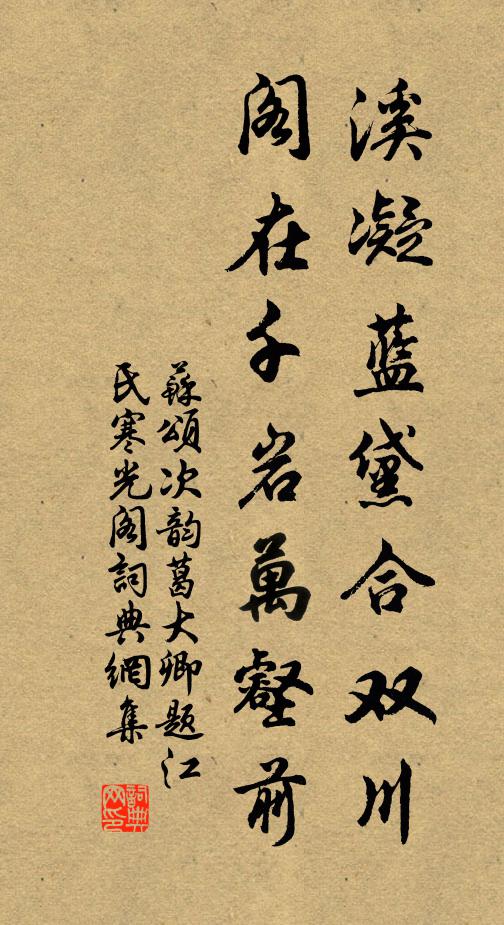 溪凝藍黛合双川
阁在千岩萬壑前
蘇頌次韵葛大卿题江
氏寒光阁詞典網集
詞典网印